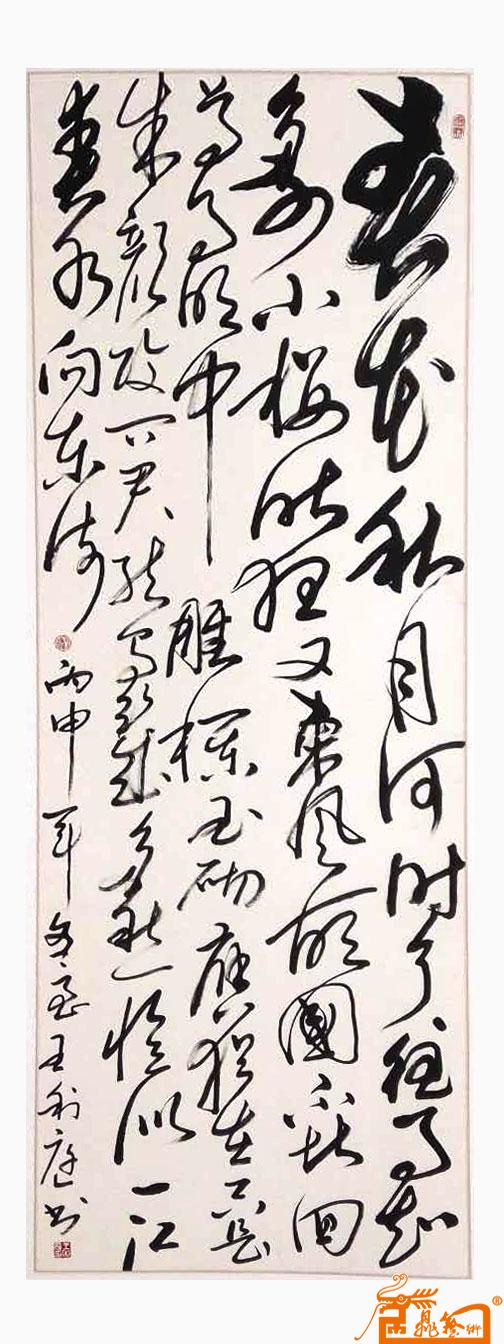 春花秋月何时了往事知
多少小楼昨夜又東风故國不堪回
首月明中雕栏玉砌應犹在只是
朱颜改问君能有幾多愁恰似一江
春水向东流 丙申年 王利庭书